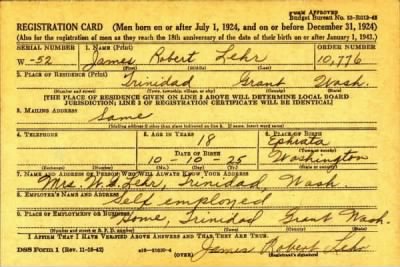 FORM APPROVED
Budget Bureau No. 33-R012-43
REGISTRATION CARD (Men born on or after July 1, 1924, and on or before December 31, 1924)
(Also for the registration of men as they reach the 18th anniversary of the date of their birth on or after January 1, 1943.)
SERIAL NUMBER 1. NAME (Print) ORDER NUMBER
W-52 James Robert Lehr 10,776
(First) (Middle) (Last)
2. PLACE OF RESIDENCE (Print)
Trinidad Grant Wash.
(Number and street) (Town, township, village, or city) (County) (State)
[THE PLACE OF RESIDENCE GIVEN ON LINE 2 ABOVE WILL DETERMINE LOCAL BOARD
JURISDICTION; LINE 2 OF REGISTRATION CERTIFICATE WILL BE IDENTICAL]
3. MAILING ADDRESS
Same
[Mailing address if other than place indicated on line 2. If same, insert word same]
4. TELEPHONE 5. AGE IN YEARS 6. PLACE OF BIRTH
18 Ephrata
DATE OF BIRTH (Town or county)
10-10-25 Washington
(Exchange) (Number) (Mo.) (Day) (Yr.) (State or country)
7. NAME AND ADDRESS OF PERSON WHO WILL ALWAYS KNOW YOUR ADDRESS
Lehr, Trinidad, Wash.
8. EMPLOYER'S NAME AND ADDRESS
Self employed
9. PLACE OF EMPLOYMENT OR BUSINESS
Home, Trinidad Grant Wash.
(Number and street or R. F. D. number) (Town) (County) (State)
I AFFIRM THAT I HAVE VERIFIED ABOVE ANSWERS AND THAT THEY ARE TRUE.
DSS Form 1 (Rev. 11-16-42) (OVER) James Robert Lehr
(Registrant's signature)